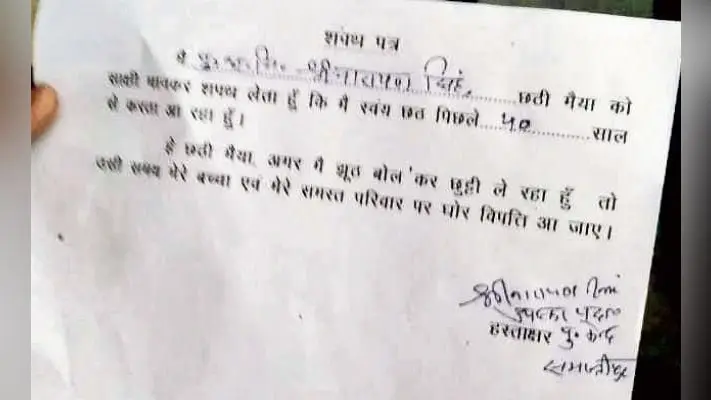 शपथ पत्र
मै पु० अ० नि० श्रीनारायण सिंह, छठी मैया को
साक्षी मानकर शपथ लेता हूँ कि मै स्वंय छठ पिछले.....५०............साल
से करता आ रहा हूँ।
हे छठी मैया, अगर मै झूठ बोल 'कर छुट्टी ले रहा हूँ तो
उसी समय मेरे बच्चा एवं मेरे समस्त परिवार पर घोर विपत्ति आ जाए।
श्रीनारायण सिंह
हस्ताक्षर पु० केन्द्र
समस्तीपुर